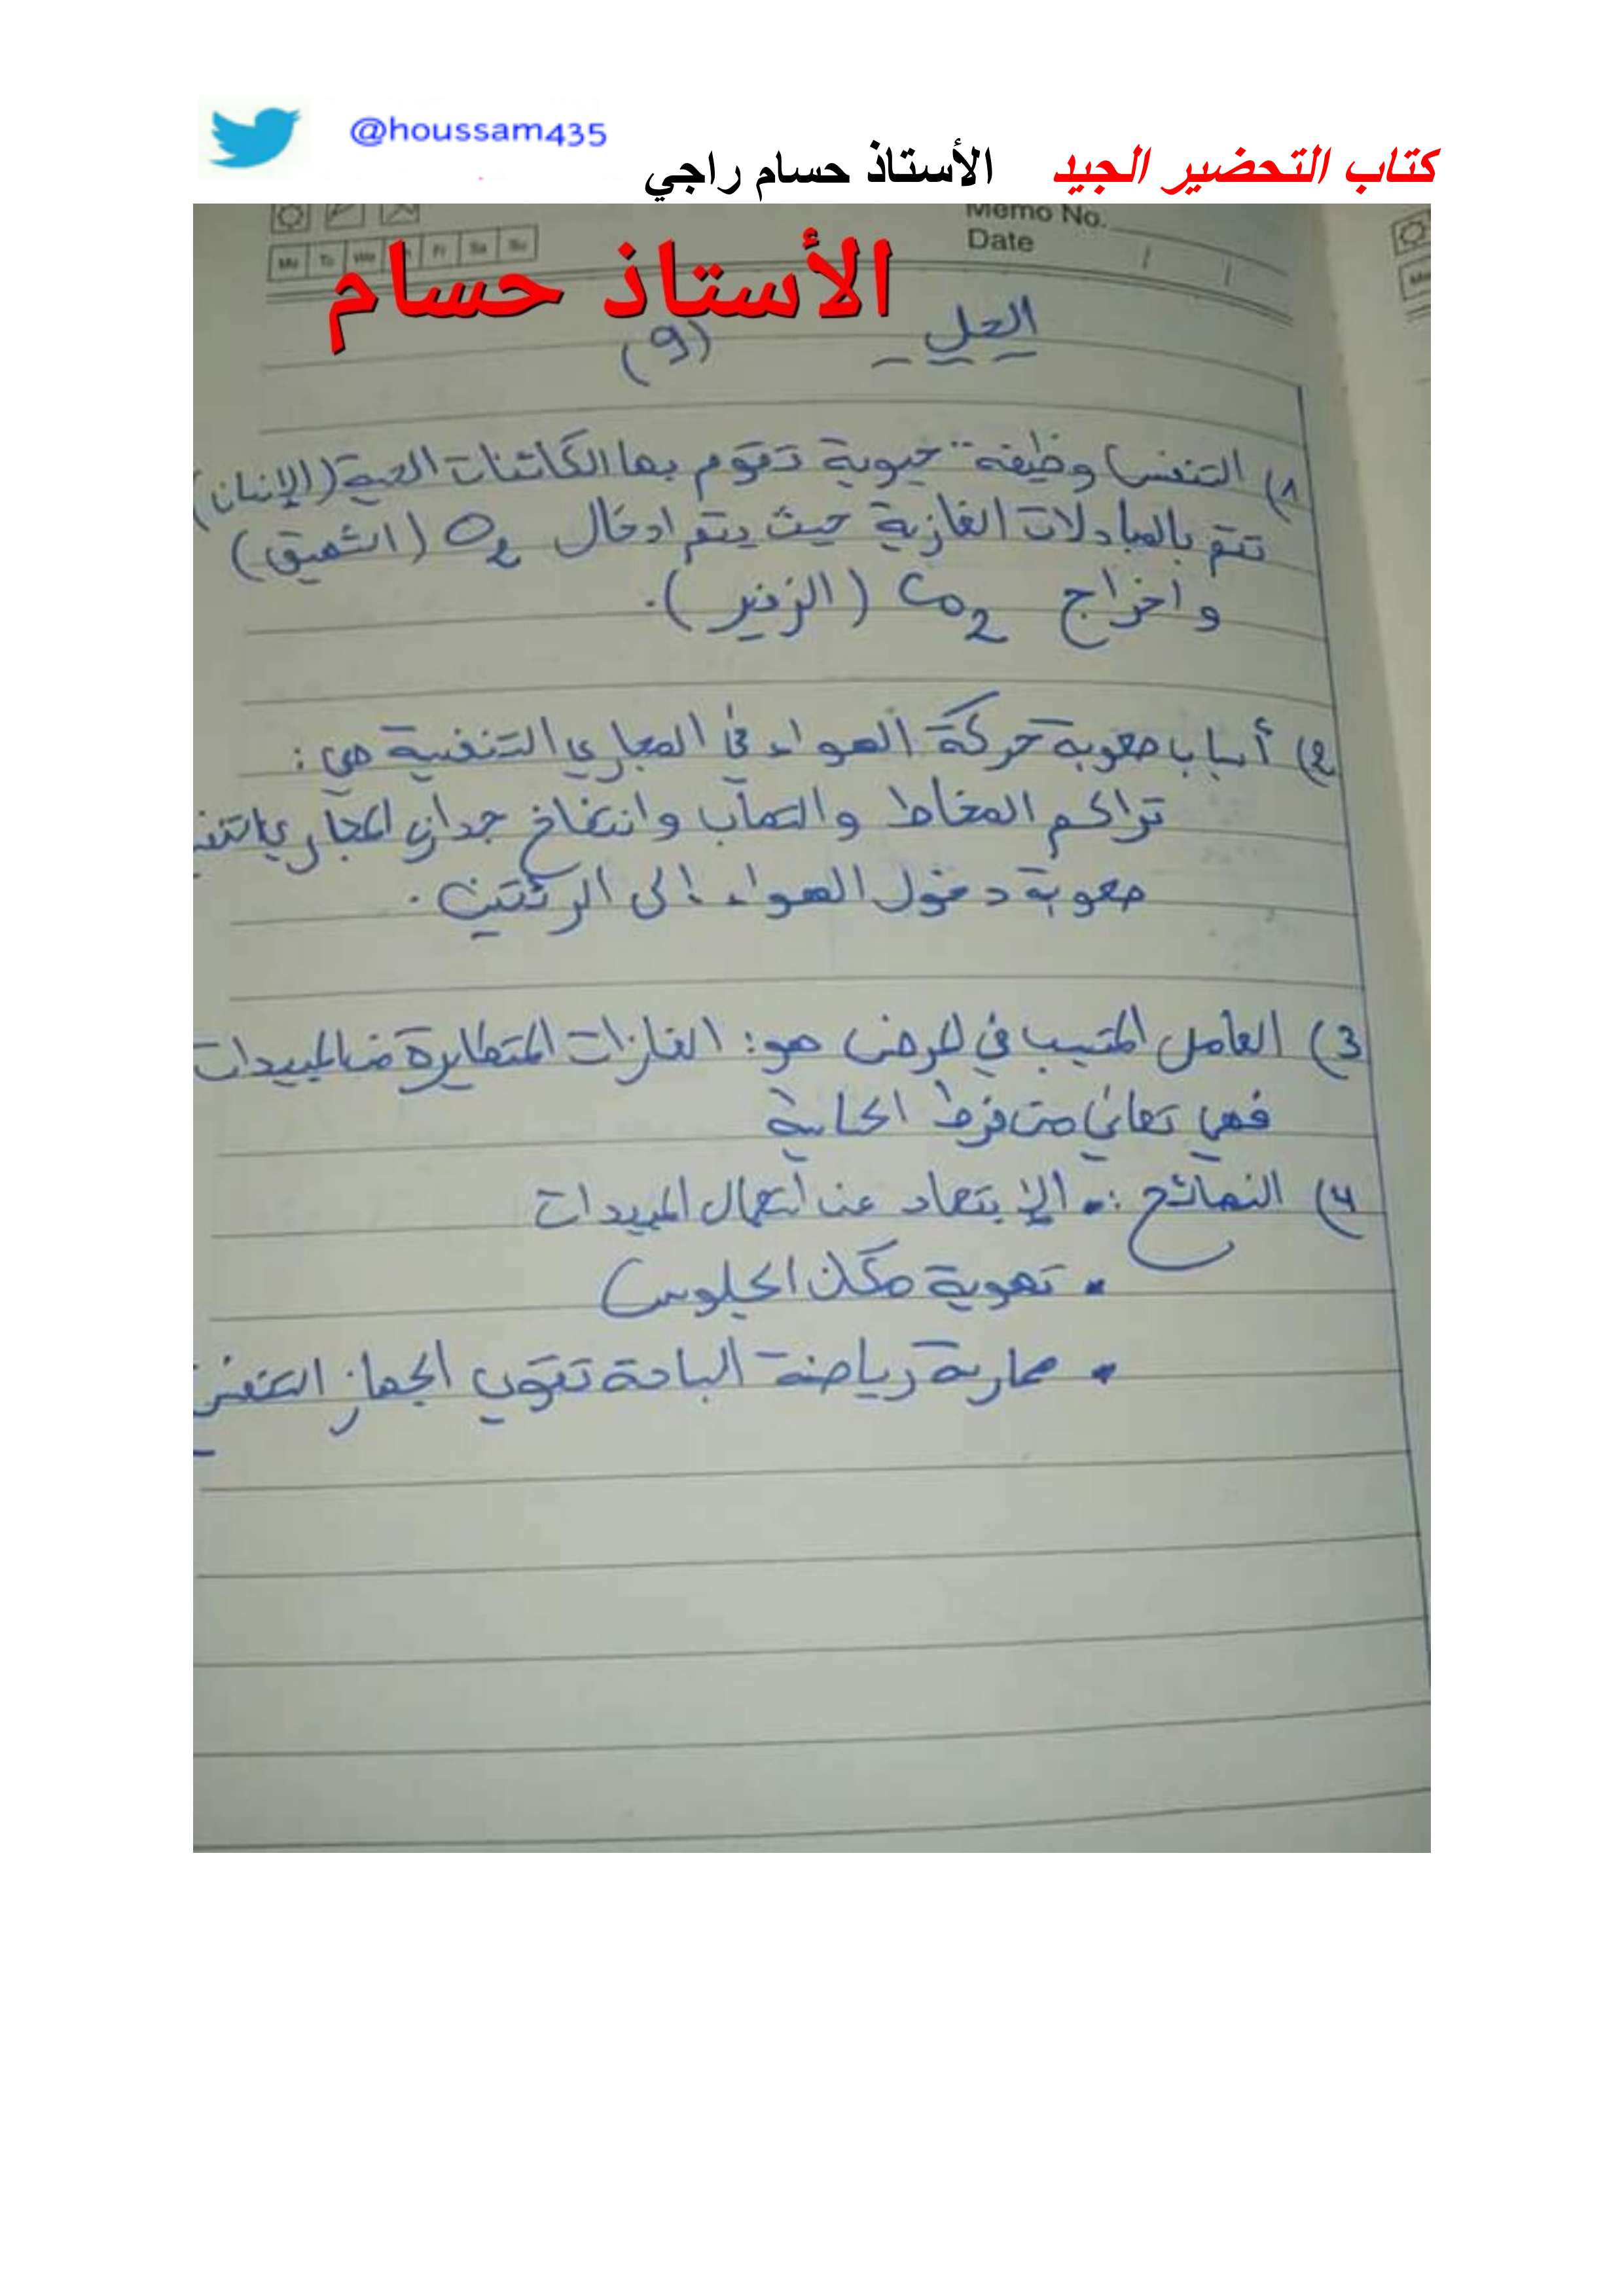 @houssam435
كتاب التحضير الجيد الأستاذ حسام راجي
Memo No.
Date
Mo Tu We Th Fr Sa Su
الأستاذ حسام
الحل (9)
1) التنفس وظيفة حيوية تقوم بها الكائنات الحية (الإنسان)
تتم بالمبادلات الغازية حيث يتم ادخال O2 (الشهيق)
واخراج CO2 (الزفير).
2) أسباب صعوبة حركة الهواء في المجاري التنفسية هي:
تراكم المخاط والتهاب وانتفاخ جدار المجاري
صعوبة دخول الهواء إلى الرئتين.
3) العامل المتسبب في المرض هو: الغازات المتطايرة من المبيدات
فهي تعاني من فرط الحساسية
4) النصائح: • الإبتعاد عن استعمال المبيدات
• تهوية مكان الجلوس
• ممارسة رياضة السباحة تقوي الجهاز